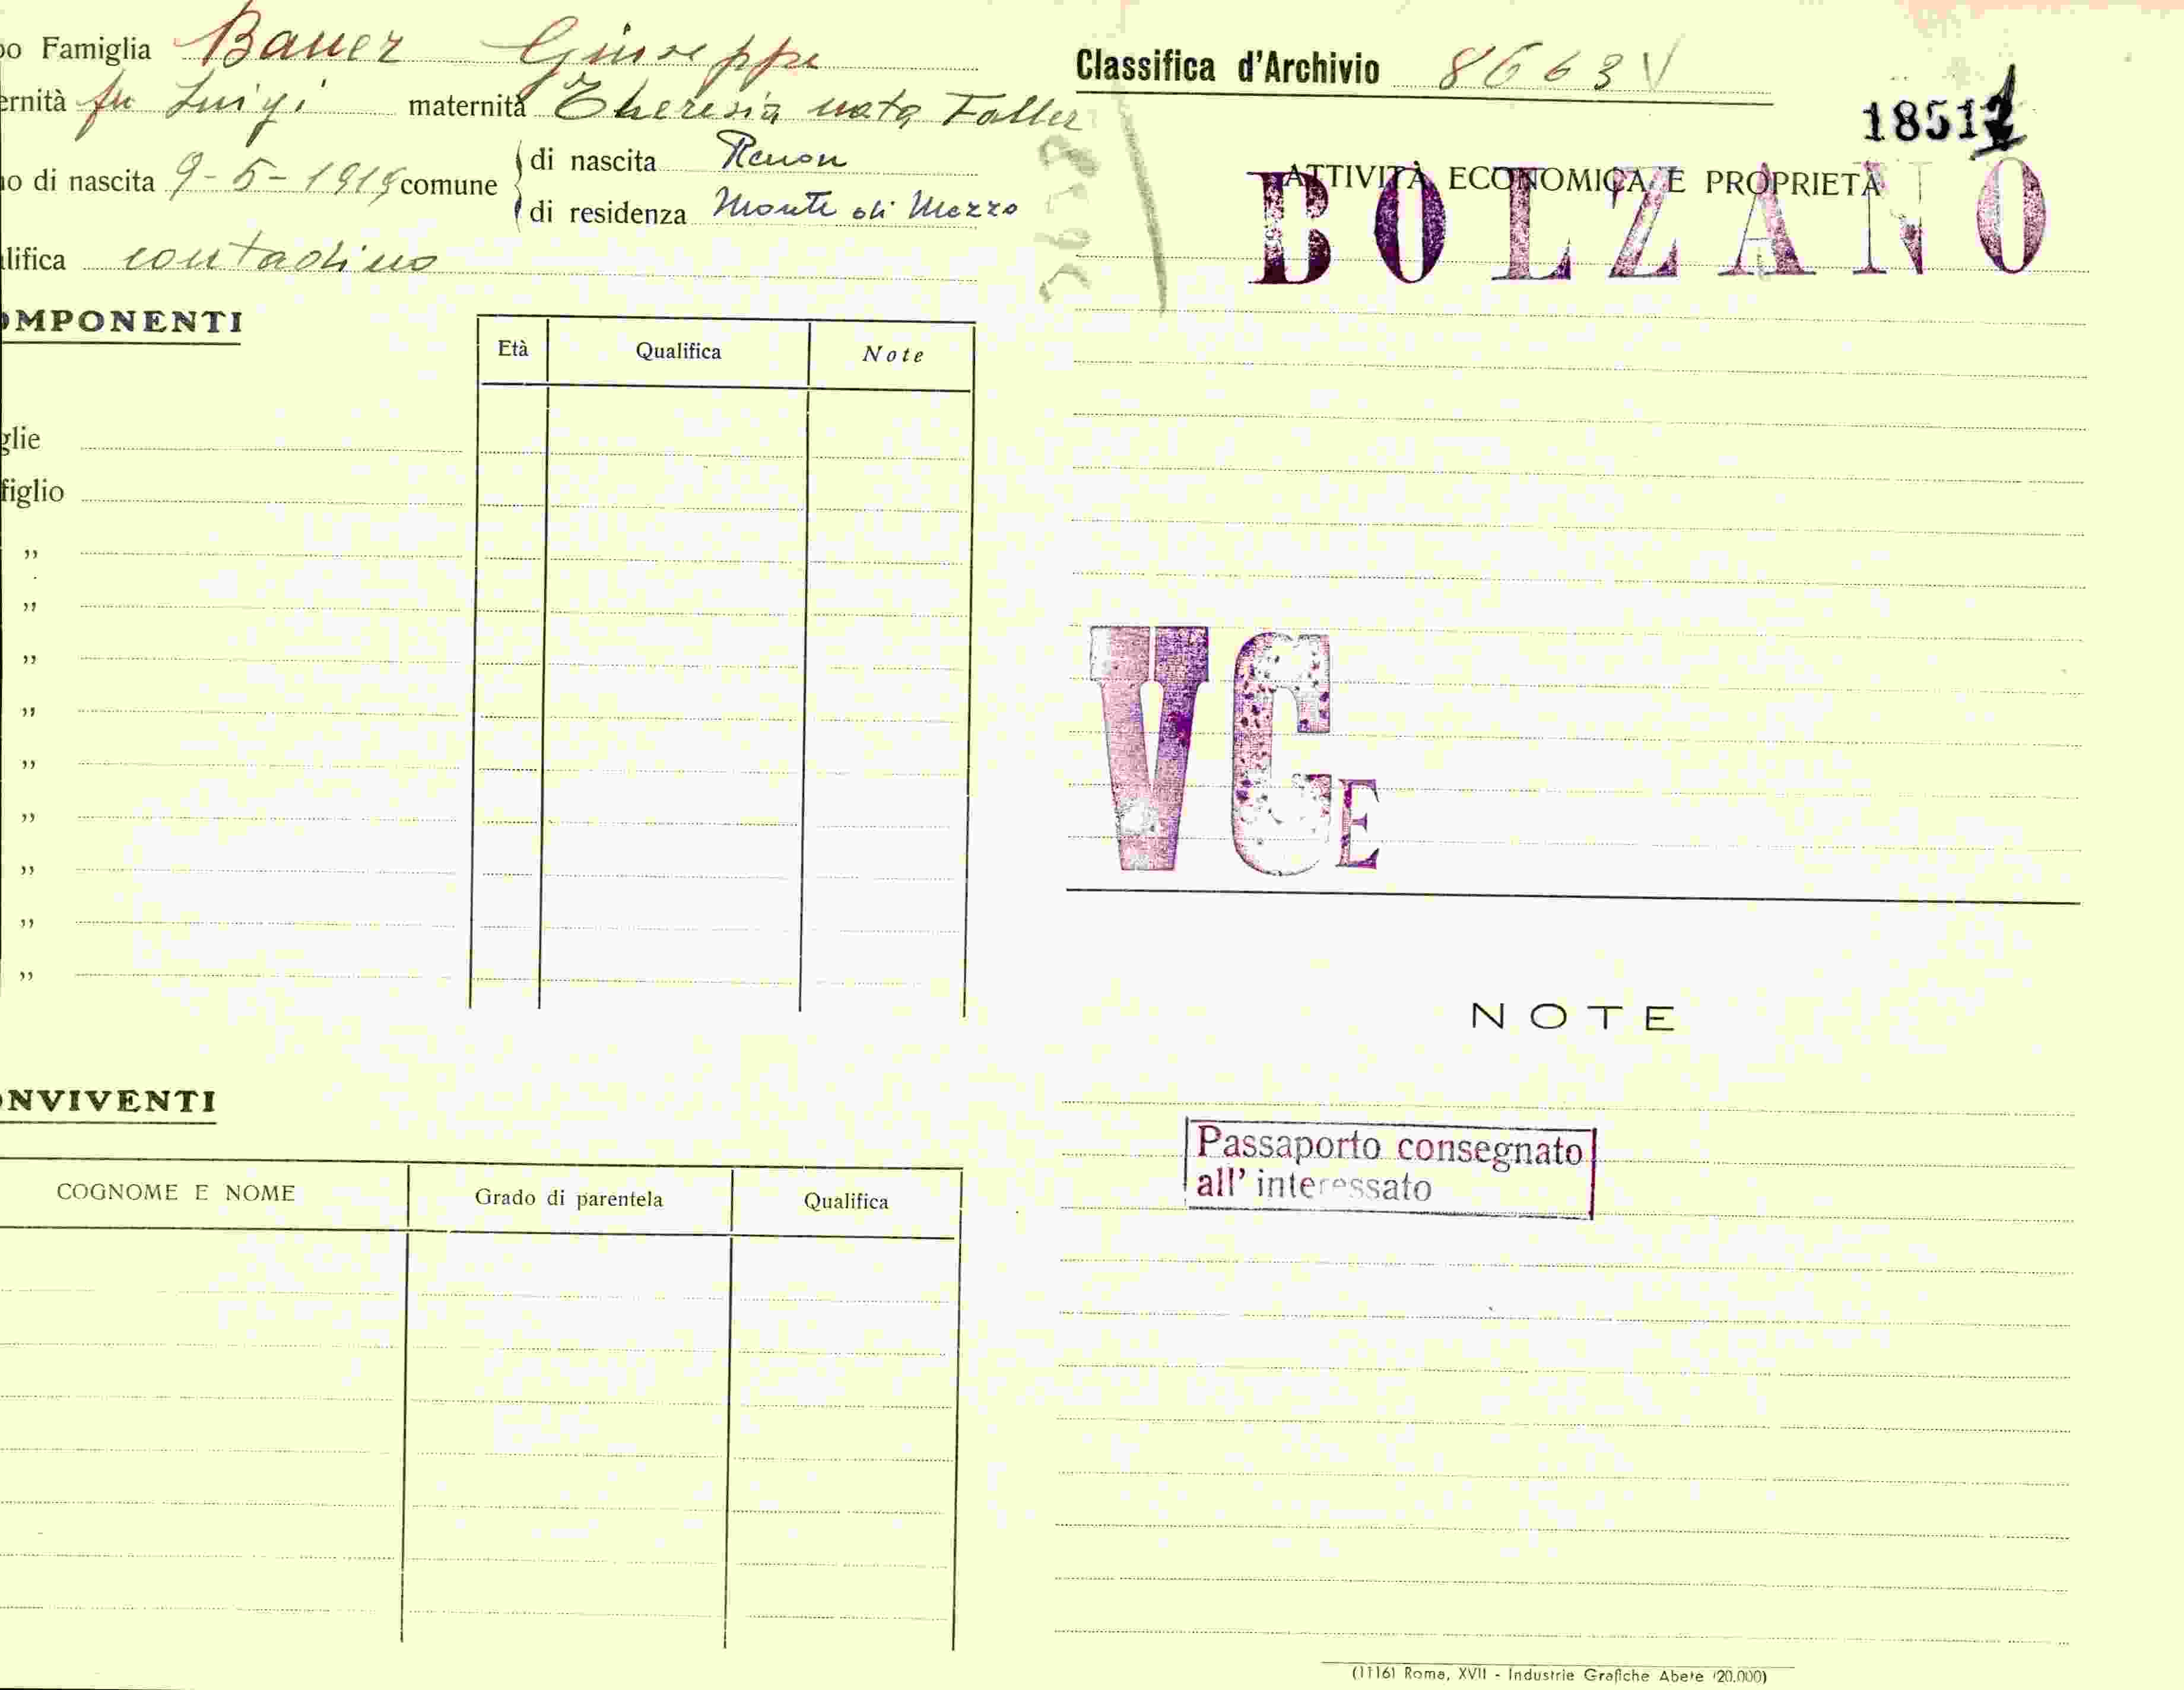 po Famiglia Bauer Giuseppe
ernità fu Luigi maternità Theresia nata Faller
no di nascita 9-5-191 comune di nascita Renon
di residenza Monte di Mezzo
lifica contadino
OMPONENTI
Età Qualifica Note
glie
figlio
"
"
"
"
"
"
"
"
"
ONVIVENTI
COGNOME E NOME Grado di parentela Qualifica
Classifica d'Archivio 8663 V
18511
ATTIVITÀ ECONOMICA E PROPRIETÀ
BOLZANO
VGE
NOTE
Passaporto consegnato
all'interessato
(1116) Roma, XVII - Industrie Grafiche Abete (20.000)